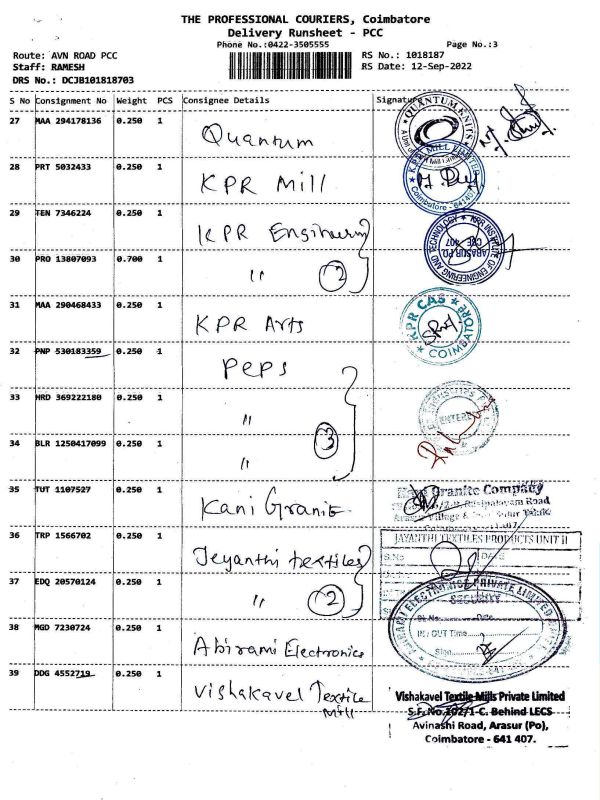 THE PROFESSIONAL COURIERS, Coimbatore
Delivery Runsheet - PCC
Phone No.:0422-3505555 Page No.:3
Route: AVN ROAD PCC RS No.: 1018187
Staff: RAMESH RS Date: 12-Sep-2022
DRS No.: DCJB101818703
S No Consignment No Weight PCS Consignee Details Signature
27 MAA 294178136 0.250 1 Quantum
QUANTUM KNITS
28 PRT 5032433 0.250 1 KPR Mill
K.P.R. MILL LIMITED
Coimbatore - 641407
29 TEN 7346224 0.250 1 KPR Engineerin
KPR INSTITUTE OF ENGINEERING AND TECHNOLOGY
ARASUR PO.
CBE 407
30 PRO 13807093 0.700 1 " 2
31 MAA 290468433 0.250 1 KPR Arts
KPR CAS
COIMBATORE
32 PNP 530183359 0.250 1 Peps
33 HRD 369222180 0.250 1 "
ENTERED
34 BLR 1250417099 0.250 1 " 3
35 TUT 1107527 0.250 1 Kani Granite
Granite Company
Road
36 TRP 1566702 0.250 1 Jeyanthi textiles
JAYANTHI TEXTILES PRODUCTS UNIT II
S.No DATE
37 EDQ 20570124 0.250 1 " 2
PRIVATE LIMITED
SECURITY
Date
IN / OUT Time
Sign
38 MGD 7230724 0.250 1 Abirami Electronics
39 DDG 4552719 0.250 1 Vishakavel Textile
Mill
Vishakavel Textile Mills Private Limited
S.F. No.102/1-C. Behind LECS
Avinashi Road, Arasur (Po),
Coimbatore - 641 407.